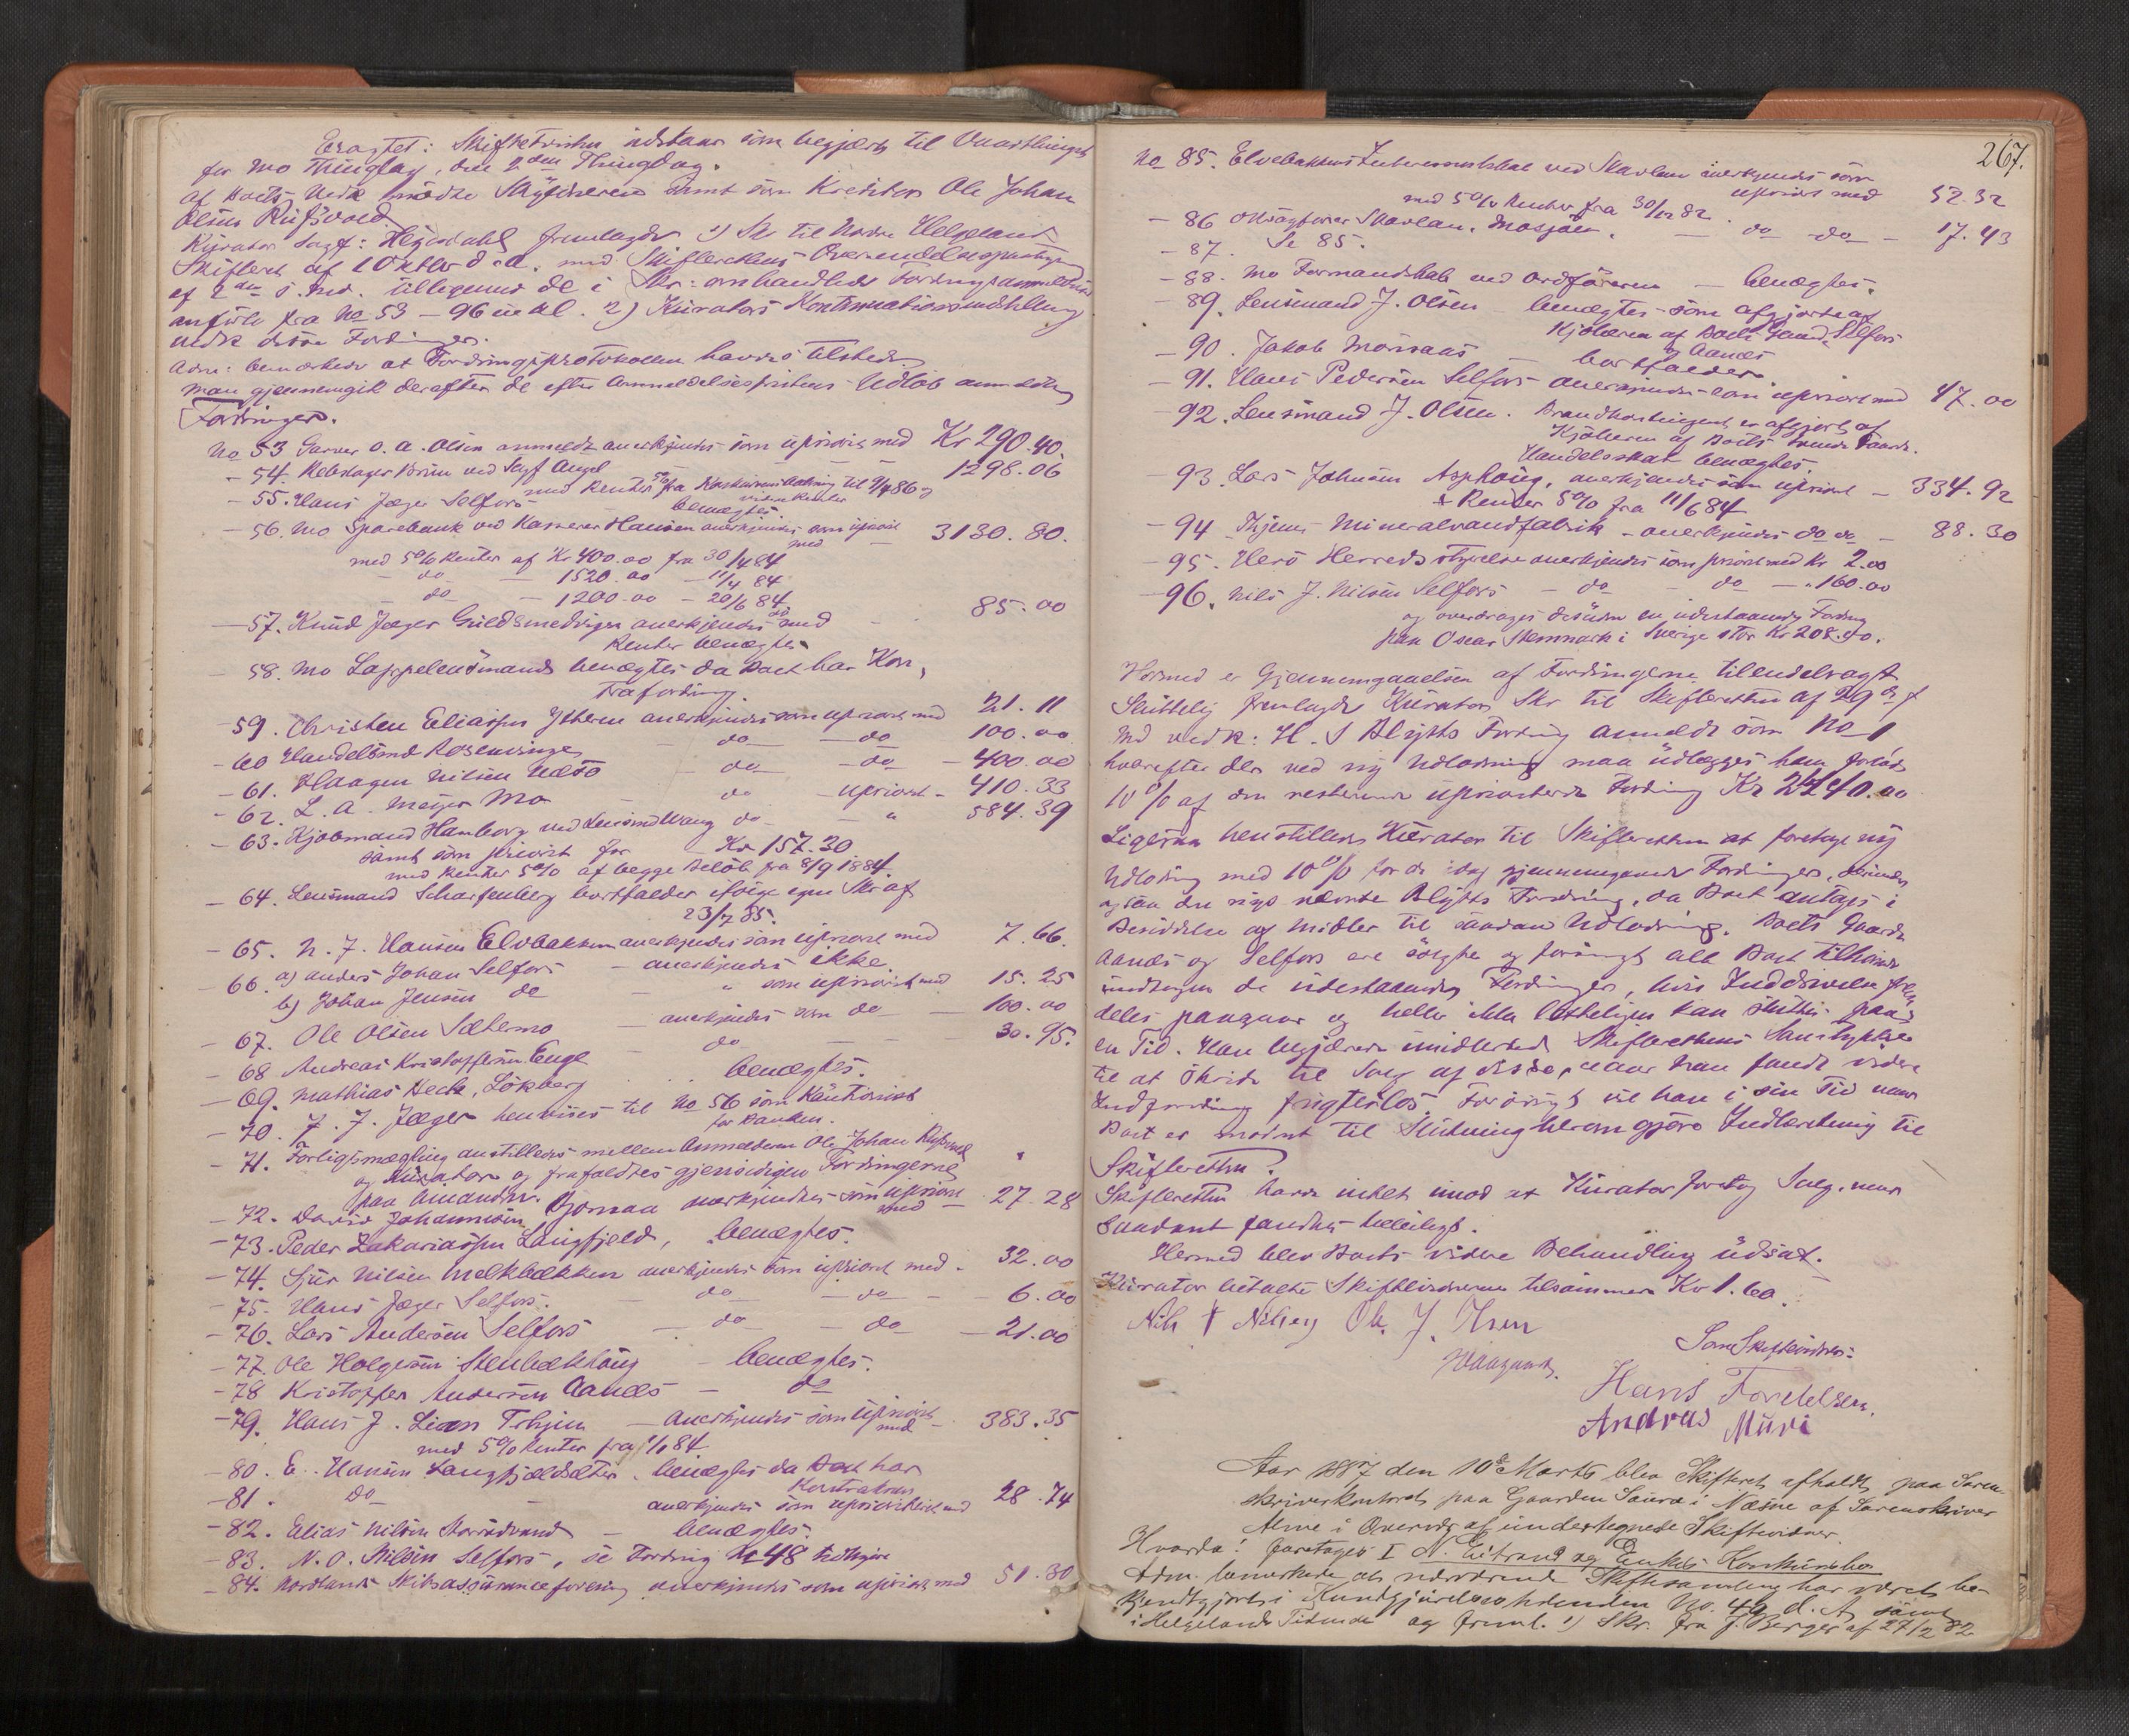 Eragtet: Skifteretten udstaar som begjært til Vaarthinget
for Mo Thinglag, den 2den Thingdag.
af Boets Vedk mødte Skyldneren samt som Kreditor Ole Johan
Olsen Rufsvold.
Kurator Sagf: Hegdahl fremlagde 1) Skr til Nordre Helgeland
Skifteret af 1 Oktbr d. a. med Skifterettens Oversendelsespaategn
af 2den s. Md. tilligemed de i Skr: omhandlede Fordringsanmeldelser
anførte fra No 53 – 96 incl. 2) Kurators Kontinuationsindstilling
vedk disse Fordringer.
Adm: bemærkede at Fordringsprotokollen havdes tilstede
Man gjennemgik derefter de efter Anmeldelsesfristens Udløb anmeldte
Fordringer.
No 53 Garver O. A. Olsen anmeldt anerkjendes som uprioris med Kr 290.40.
- 54. Rebslager Brun ved Sagf Angel 1298.06
med Renter 5% fra Konkursens Aabning til 9/4 86 og
- 55. Hans Jæger Selfors – benægtes.
- 56. Mo Sparebank ved Kasserer Hansen anerkjendes som uprior med 3130.80.
med 5% Renter af Kr 400.00 fra 30/4 84
- do – 1520.00 – 11/4 84
- do – 1200.00 – 20/6 84
- 57. Knud Jæger Guldsmedvigen anerkjendes do med 85.00
Renter benægtes
58. Mo Lappelensmand benægtes da Boet har Kon,
trafordring.
- 59. Christen Eliassen Ytteren anerkjendes som uprioris med 21.11
- 60 Handelsmd Rosenvinge – do – do 100.00
- 61. Haagen Nilsen Næsø – do – do – 400.00
- 62. L. A. Meyer Mo do – uprioris – 410.33
- 63. Kjøbmand Hamborg ved Lensmd Wang do – " 584.39
samt som priorit for Kr 157.30
med Renter 5% af begge Beløb fra 8/9 1884.
- 64. Lensmand Scharffenberg bortfalder ifølge egen Skr af
23/7 85.
- 65. N. J. Hansen Elvbakken anerkjendes som uprioris med 7.66.
- 66. a) Anders Johan Selfors – anerkjendes ikke
b) Johan Jensen do – " som uprioris med 15.25
- 67. Ole Olsen Sætermo – anerkjendes som do – 100.00
- 68 Andreas Kristoffersen Enge – do – 30.95.
- 69. Mathias Heck, Løkberg benægtes.
- 70. J. J. Jæger henvises til No 56 som Kautionist
for Banken.
- 71. Forligsmægling anstilledes mellem Anmelderen Ole Johan Rufsvold
og Kurator og frafaldtes gjensidigen Fordringerne
paa hinanden.
- 72. David Johannesen Bjørnaa anerkjendtes som uprioris med – 27.28
- 73. Peder Zakariassen Langfjeld, benægtes.
- 74. Sjur Nilsen Melkbækken anerkjendes som uprioris med – 32.00
- 75. Hans Jæger Selfors. – do – do – 6.00
- 76. Lars Andersen Selfors – do – do – 21.00
- 77. Ole Holgersen Stenbækhaug – benægtes.
- 78 Kristoffer Andersen Aanes – do
- 79. Hans J. Lian – Anerkjendes som uprioris med – 383.35
med 5% Renter fra
- 80. E. Hansen Langfjeldsæter. benægtes da Boet har
Kontrakrav
- 81. do – anerkjendes som uprioris med 28.74
- 82. Elias Nilsen – benægtes.
- 83. N. O. Nilsen Selfors, se Fordring No 48
- 84. Nordlands Skibsassuranceforening anerkjendes som uprioris med 51.80
267.
No 85. Elvebakkens ved Skavlan anerkjendes som
uprioris med 52.32
med 5% Renter fra 30/12 82
- 86 Skavlan. Mosjøen. – do – do – 17.43
- 87. Se 85.
- 88. Mo Formandskab ved Ordføreren – benægtes.
- 89. Lensmand J. Olsen – benægtes som afgjorte af
Kjøberen af Boets Gaard Selfors
og Aanes
- 90. Jakob Moisaas – bortfalder.
- 91. Hans Pedersen Selfors anerkjendes som uprioris med 47.00
- 92. Lensmand J. Olsen. Brandkontingent er afgjort af
Kjøberen af Boets Gaarde.
Handelsskat benægtes.
- 93. Lars Johnsen Asphaug, anerkjendes som uprioris – 334.92
& Renter 5% fra 11/6 84
- 94 Thjems Mineralvandfabrik – anerkjendes do do – 88.30
- 95. Herø Herredsstyrelse anerkjendes som priorit med Kr 2.00
- 96. Nils J. Nilsen Selfors – do – do – " 160.00
og overdrages desuden en udestaaende Fordring
paa Oscar Stenmark i Sverige stor Kr 208.90.
Hermed er Gjennemgaaelsen af Fordringerne tilendebragt
Skriftlig fremlagde Kurator Skr til Skifteretten af 29 f
Md vedk: H. S Blydts Fordring anmeldt som No 1
hvorefter der ved ny Udlodning maa udlægges ham
10 % af den resterende upriorterede Fordring Kr 2440.00
Ligesaa henstillede Kurator til Skifteretten at foretage ny
Udlodning med 10 % for de idag gjennemgaaede Fordringer, derunder
ogsaa den nys nævnte Blydts Fordring, da Boet antages i
Besiddelse af Midler til saadan Udlodning. Boets Gaarde
Aanes og Selfors ere solgte og forøvrigt alt Boet tilhørende
undtagen de udestaaende Fordringer, hvis Inddrivelse frem
deles paagaar og heller ikke letteligen kan sluttes paa
en Tid. Han begjærede imidlertid Skifterettens Samtykke
til at skride til Salg af disse, naar han fandt videre
Indfordring frugtesløs. Forøvrigt vil han i sin Tid naar
Boet er modent til Slutning herom gjøre Indberetning til
Skifteretten.
Skifteretten havde intet imod at Kurator foretog Salg, naar
saadant fandtes beleiligt.
Hermed blev Boets videre Behandling udsat.
Kurator betalte Skiftevidnerne tilsammen Kr 1.60.
Nils J Nilsen Ole J. Olsen
Som Skiftevidner:
Hans
Andreas Muri
Aar 1887 den 10de Marts blev Skifteret afholdt paa Soren-
skriverkontoret paa Gaarden Saura i Næsne af Sorenskriver
i Overvær af undertegnede Skiftevidner.
Hvorda: foretages I N. Eitrand og Enkes Konkursbo
Adm. bemærkede at nærværende Skiftesamling har været be-
kjendtgjort i Kundgjørelsestidenden No. 49 d. A. samt
i Helgelands Tidende og freml. 1) Skr. fra J. Berger af 27/2 82